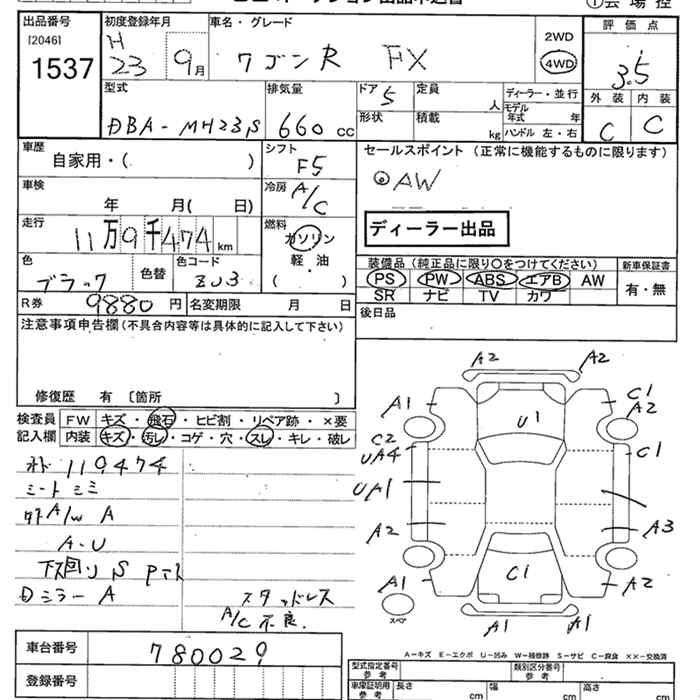 ①会 場 控
出品番号
[2046]
1537
初度登録年月
H
23 9月
車名・グレード
ワゴンR FX
2WD
4WD
評 価 点
3.5
外 装 内 装
C C
型式
DBA-MH23S
排気量
660 CC
ドア
5
形状
定員
人
積載
kg
ディーラー・並行
モデル
年式 年
ハンドル 左・右
車歴
自家用・( )
シフト
F5
車検
年 月( 日)
冷房
A/C
走行
11万9千474km
燃料
ガソリン
軽・油
( )
色
ブラック
色替
色コード
ZJ3
R券 9880 円
名変期限 月 日
セールスポイント (正常に機能するものに限ります)
◎AW
ディーラー出品
装備品 (純正品に限り○をつけてください)
PS PW ABS エアB AW
SR ナビ TV カワ
新車保証書
有・無
後日品
注意事項申告欄(不具合内容等は具体的に記入して下さい)
修復歴 有 〔箇所 〕
検査員
記入欄
FW キズ・飛石・ヒビ割・リペア跡・×要
内装 キズ・汚レ・コゲ・穴・スレ・キレ・破レ
119474
シートシミ
A/W A
A-U
下廻りS
Dミラー A
スタッドレス
A/C不良
A2 A2
A1 C1
A2
U1
C2
UA4 C1
UA1
A2 A3
A1 C1 A2
スペア
A1 A1
A-キズ E-エクボ U-凹み W-補修跡 S-サビ C-腐食 ××-交換済
車台番号
780029
登録番号
型式指定番号
参 考
類別区分番号
参 考
車庫証明用
参 考
長さ cm
幅 cm
高さ cm